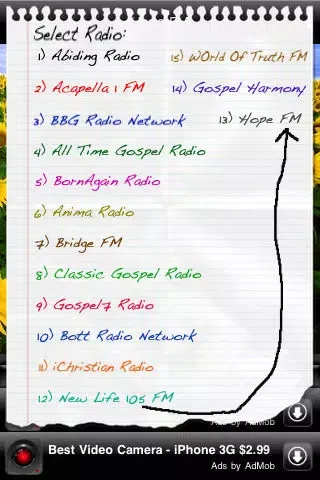 Select Radio:
1) Abiding Radio
2) Acapella 1 FM
3) BBG Radio Network
4) All Time Gospel Radio
5) BornAgain Radio
6) Anima Radio
7) Bridge FM
8) Classic Gospel Radio
9) Gospel7 Radio
10) Bott Radio Network
11) iChristian Radio
12) New Life 105 FM
13) Hope FM
14) Gospel Harmony
15) WOrld Of Truth FM
Ads by AdMob
Best Video Camera - iPhone 3G $2.99
Ads by AdMob